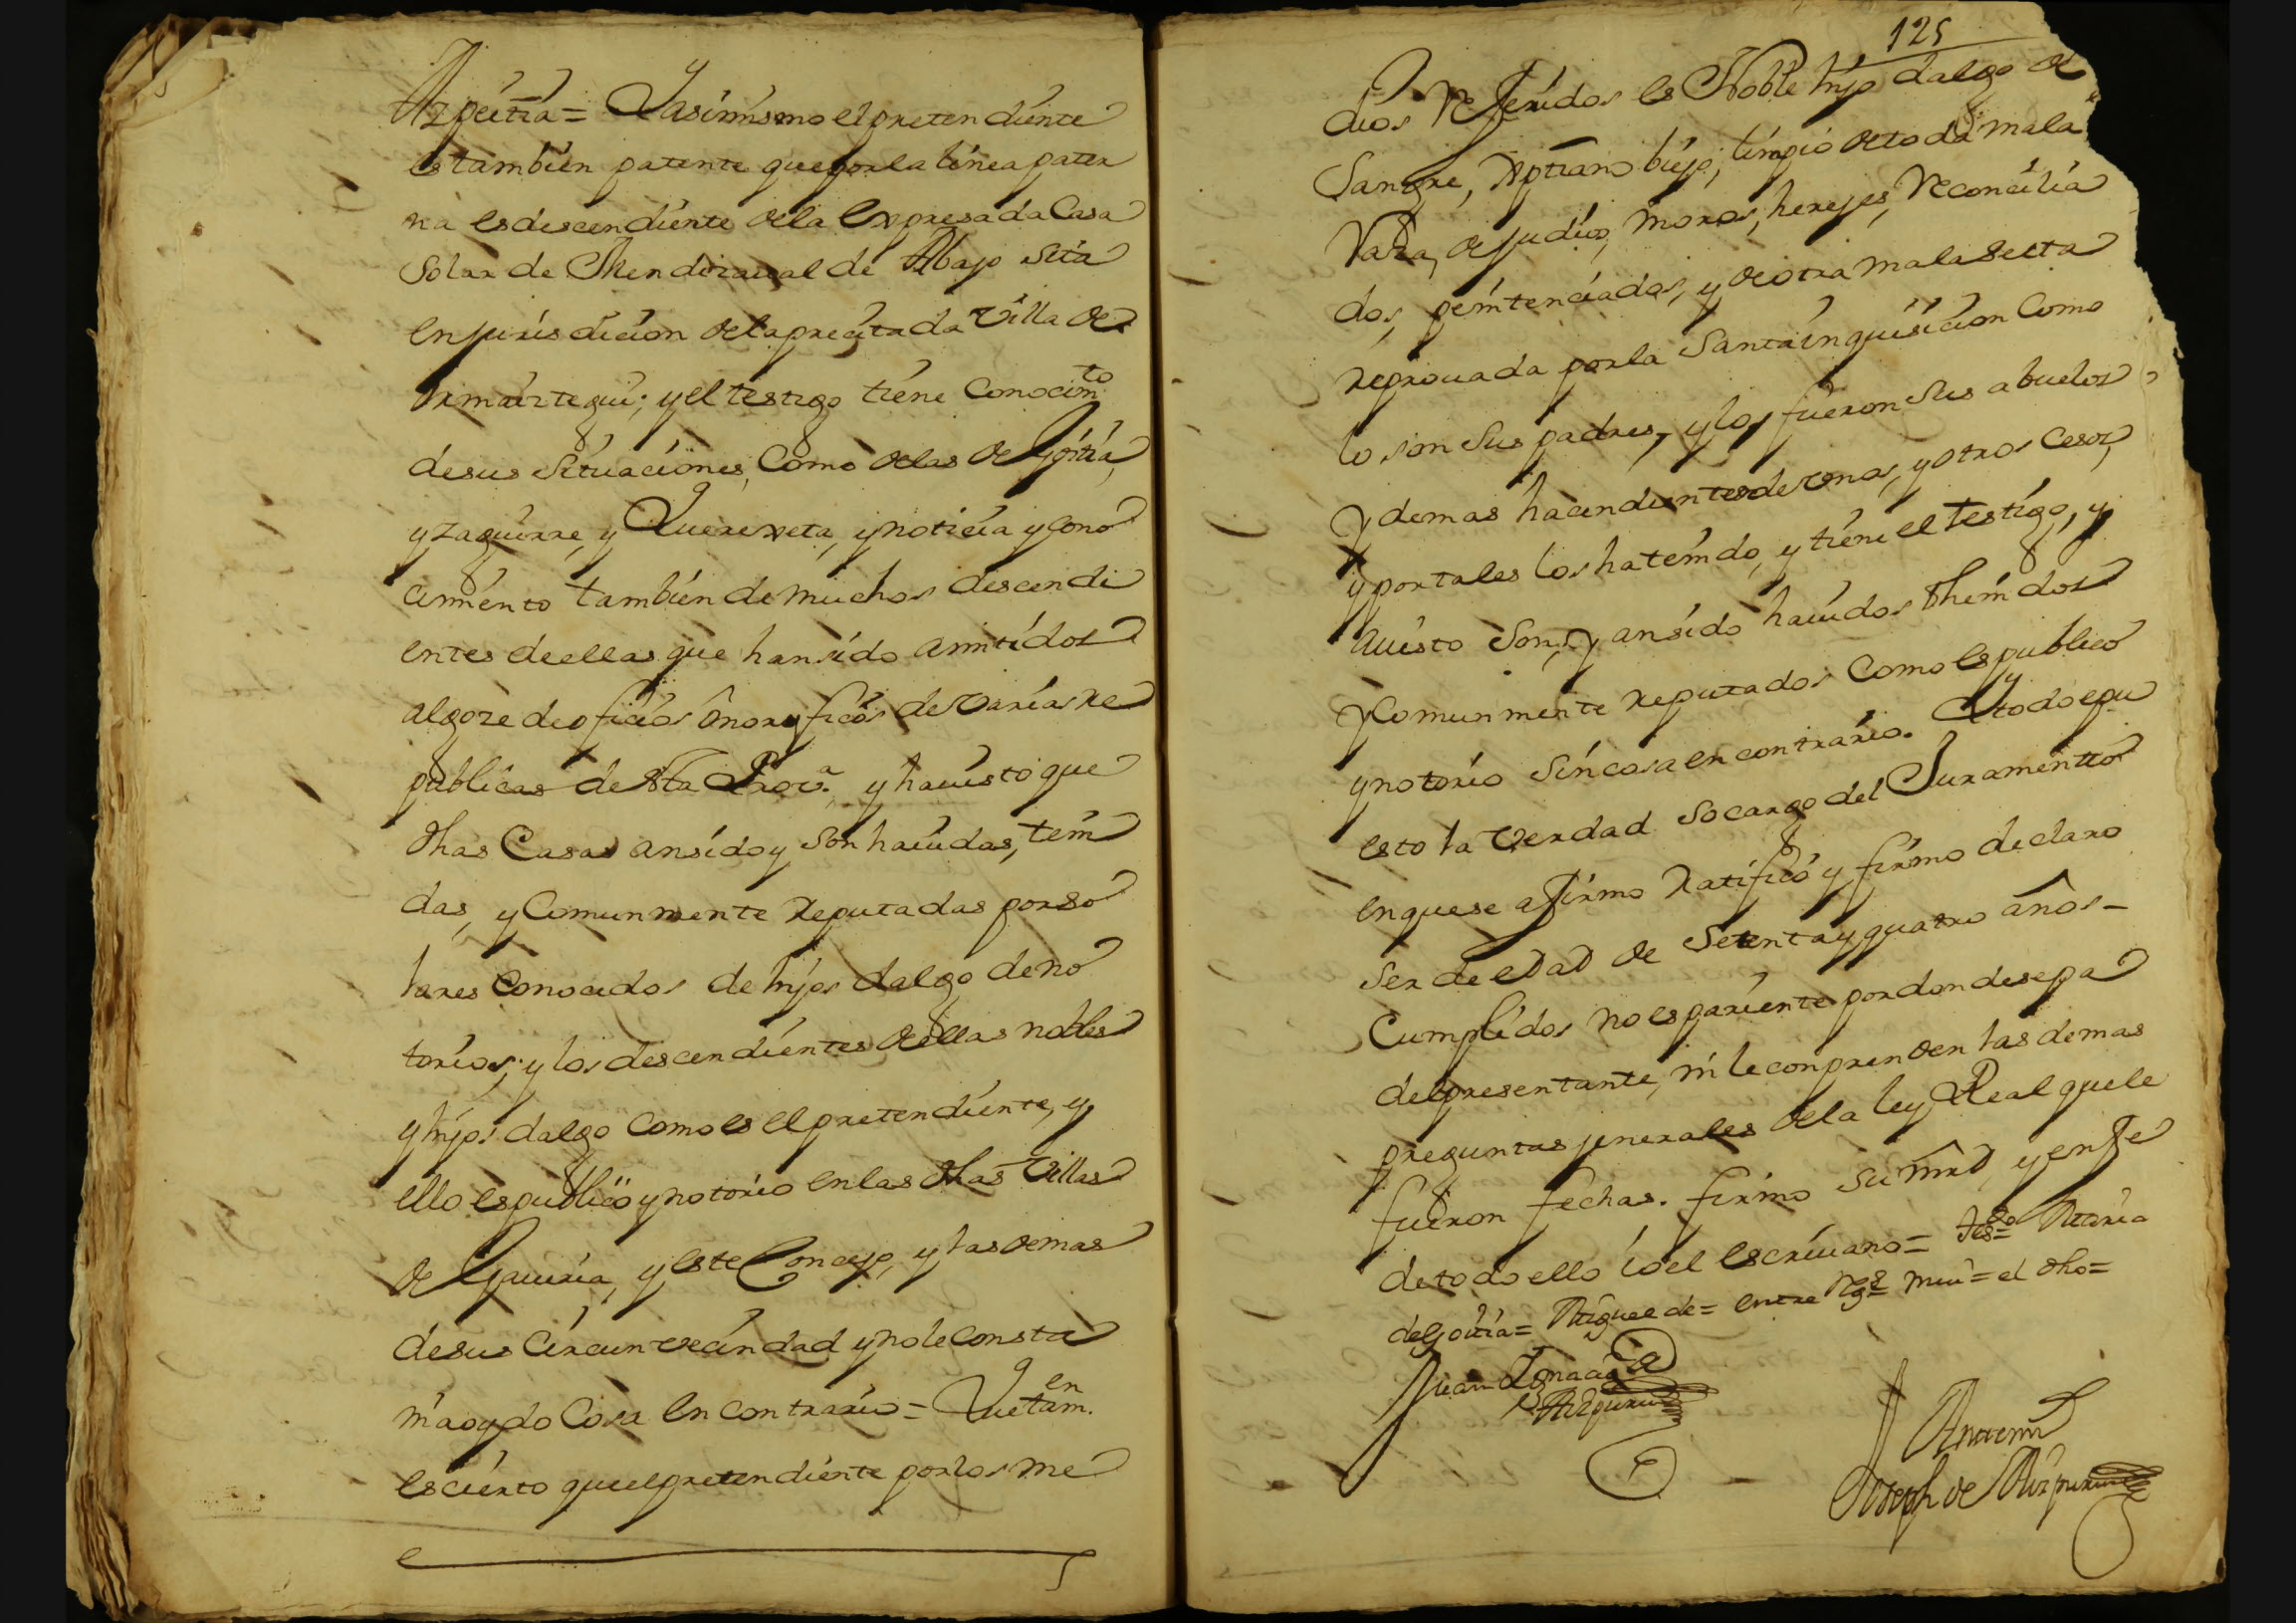 Azpeitia = Yasimismo el pretendiente
es tambien patente que por la linea pater
na es descendiente dela Expresada Casa
Solar de Mendizaual de Abajo sita
en jurisdicion dela precitada Villa de
Ormaiztegui; y el testigo tiene conocimto
de sus situaciones, Como delas de Goitia,
yzaguirre, y Querexeta, y noticia y cono
cimiento tambien de muchos descendi
entes de ellas que han sido amitidos
al goze de oficios onoryficos de varias Re
publicas de esta Prova. y ha uisto que
dhas Casas an sido y son hauidas, teni
das, y Comunmente Reputadas por so
lares Conocidos de hijos dalgo de no
torios; y los descendientes de ellas nobles
y hijos dalgo Como es el pretendiente, y
ello es publico y notorio en las dhas Villas
de Gauiria, y este Concejo, y las demas
de sus Circunvecindad y no le consta
ni a oydo Cosa en contrario = Que tamen.
es cierto que el pretendiente por los me
125
dios Referidos es Noble hijo dalgo de
Sangre, Xptiano biejo, limpio de toda mala
Raza, de judios, moros, herejes, Reconcilia
dos, penitenciados, y de otra mala secta
reprouada por la Santa inquisicion Como
lo son sus padres, y los fueron sus abuelos
y demas hacendientes de vnos, y otros Cesos,
y por tales los ha tenido, y tiene el testigo, y
a uisto son, y an sido hauidos thenidos
y Comunmente reputados Como es publico
y notorio sin cosa en contrario. Y todo equ
esto la verdad so cargo del Juramento
en que se afirmo Ratifico y firmo declaro
ser de edad de setenta y quatro años -
Cumplidos no es pariente por donde sepa
del presentante, ni le conprenden las demas
preguntas jenerales dela ley Real que le
fueron fechas. firmo su mrd, y en fe
de todo ello io el escriuano = tesgo
de Goitia = Miguel de = entre Rgs = el dho =
Juan Ignacio
de Aizpuru
Antemi
Joseph de Aizpuru